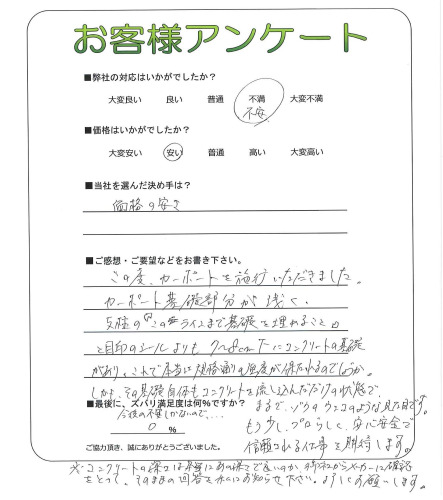 お客様アンケート
■弊社の対応はいかがでしたか？
大変良い 良い 普通 不満 大変不満
不安
■価格はいかがでしたか？
大変安い 安い 普通 高い 大変高い
■当社を選んだ決め手は？
価格の安さ
■ご感想・ご要望などをお書き下さい。
この度、カーポートを施行いただきました。
カーポート基礎部分が浅く、
支柱の「このラインまで基礎を埋めること」
と目印のシールよりも 7〜8cm下にコンクリートの基礎
があり、これで本当に規格通りの強度が保たれるのでしょうか。
しかも、その基礎自体もコンクリートを流し込んだだけの状態で、
■最後に、ズバリ満足度は何％ですか？
まるで、ゾウのウンコのような見た目です。
今後の不安しかないので....
0 ％
もう少し、プロらしく、安心安全で
信頼される仕事を期待します。
ご協力頂き、誠にありがとうございました。
※コンクリートの深さは本当にあの深さで良いのか、メーカーに確認
をとって、そのままの回答を私にお知らせ下さい。よろしくお願いします。